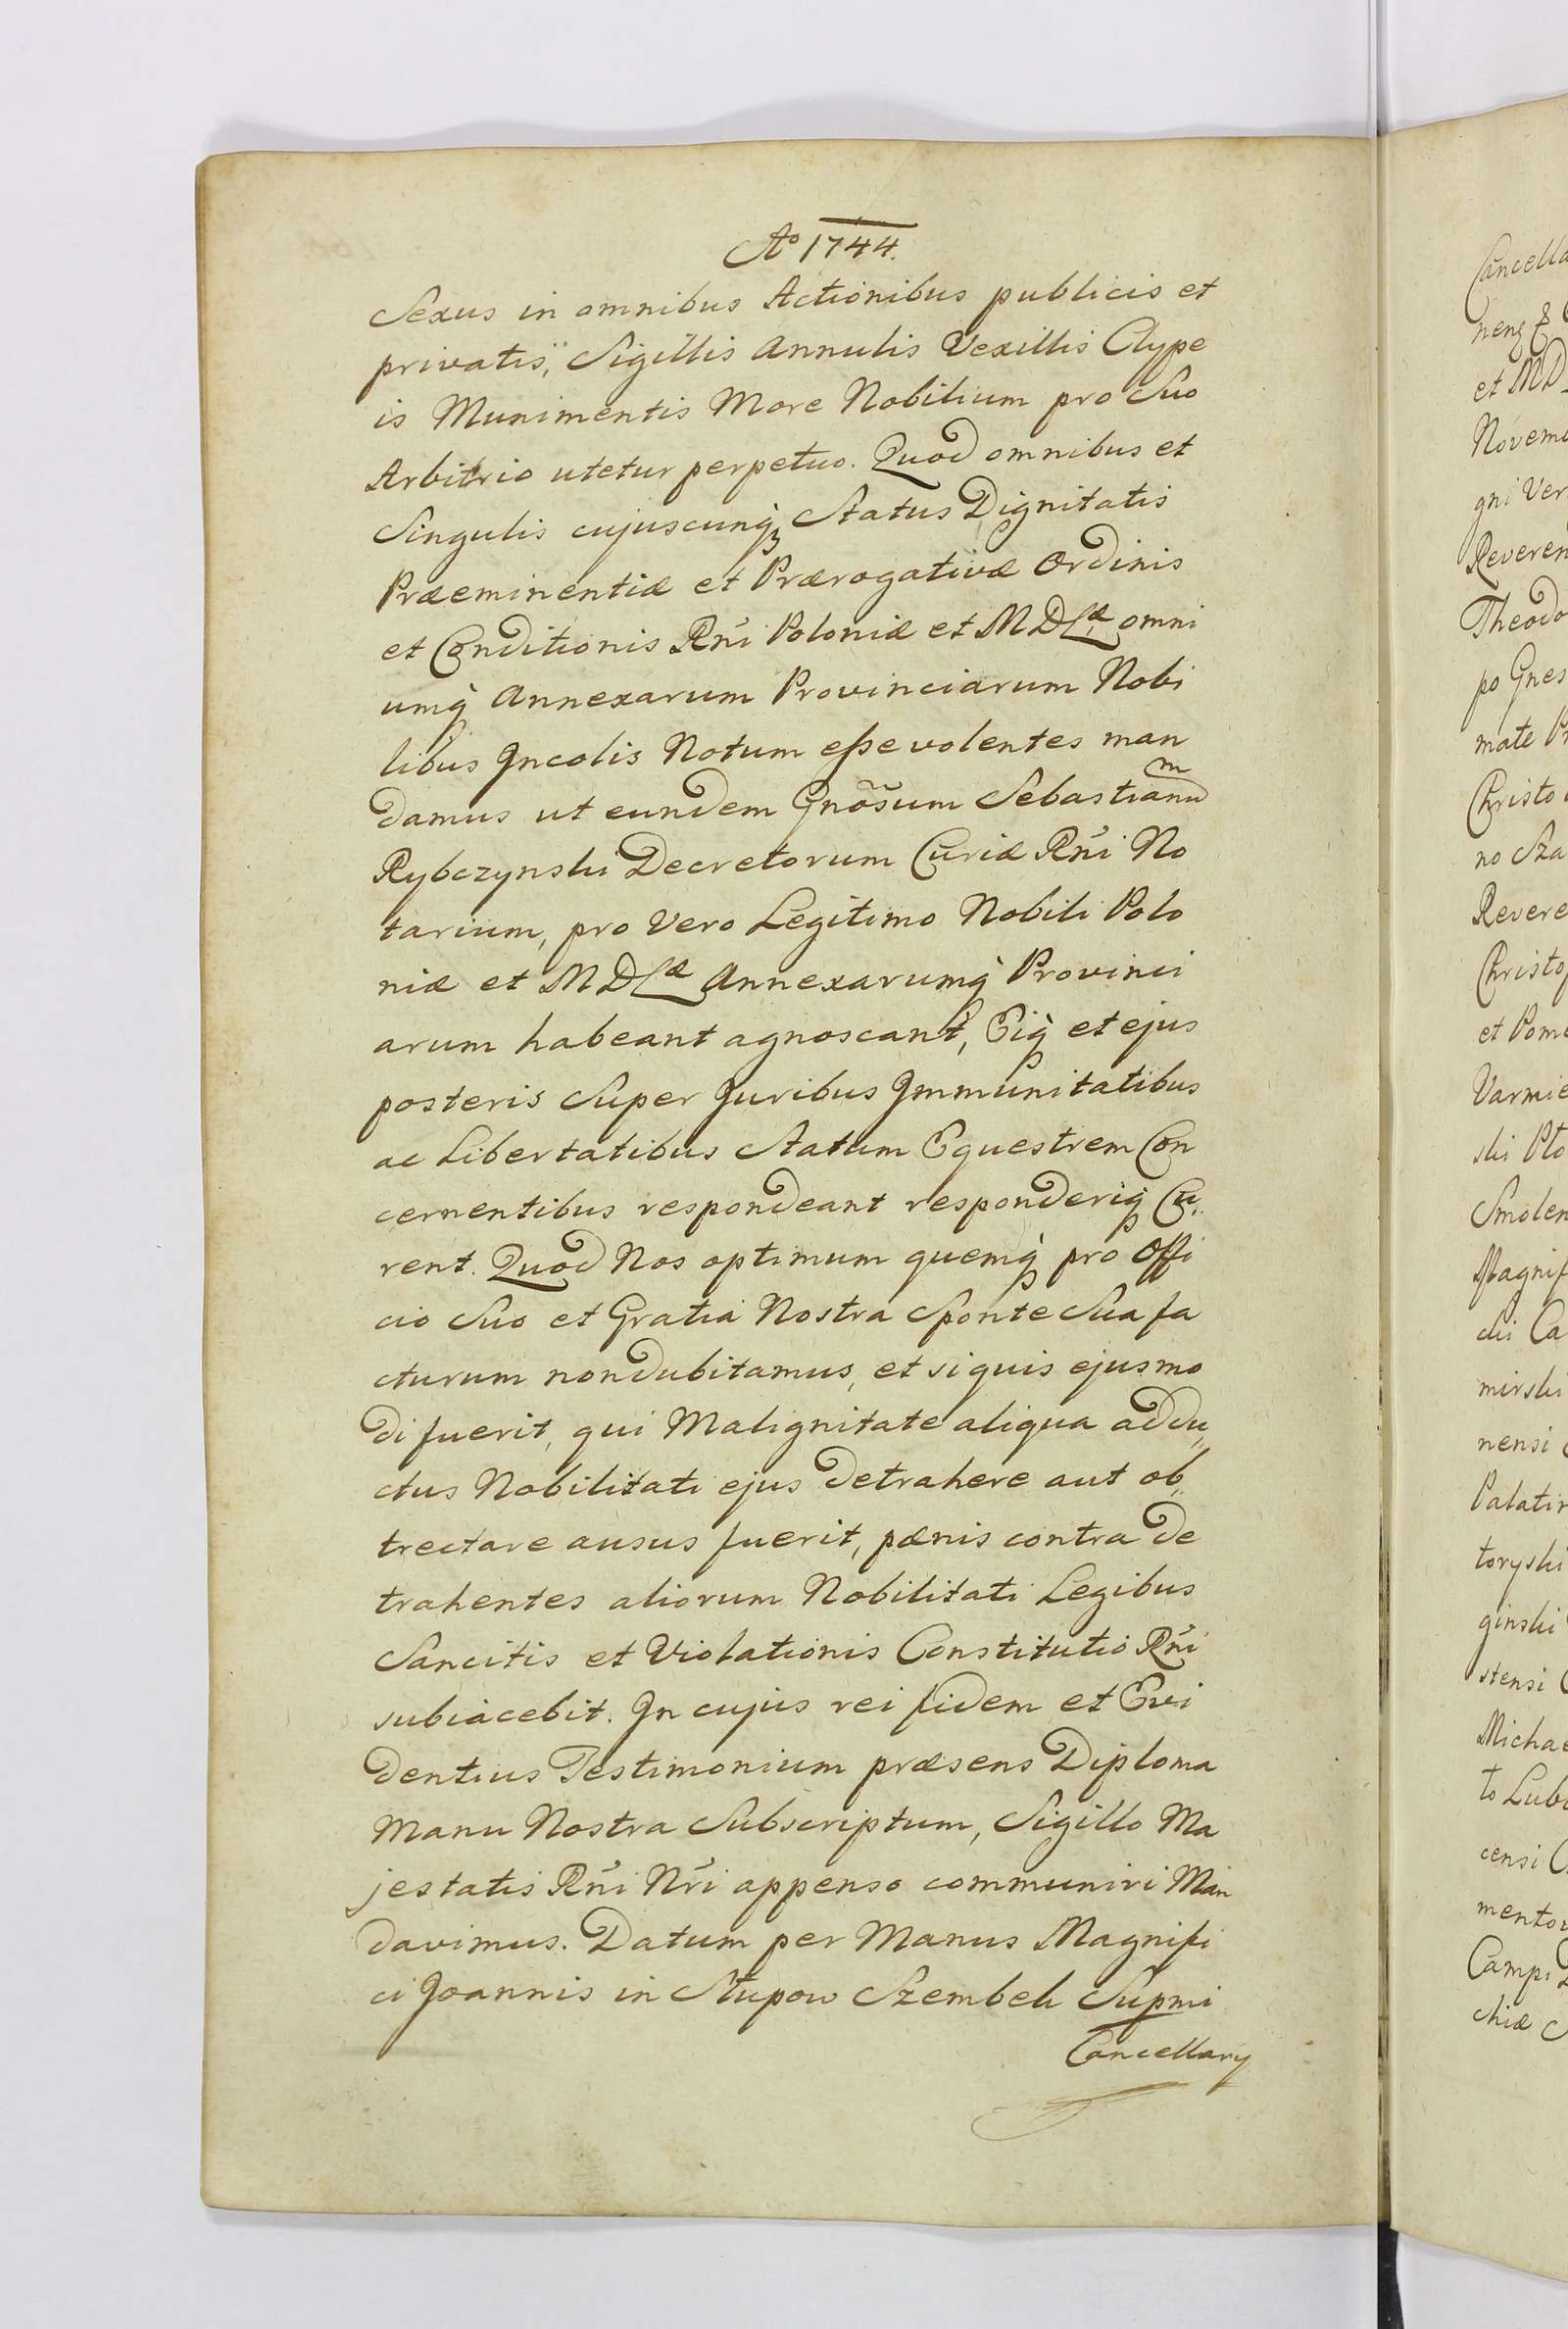 Ao 1744.
Sexus in omnibus Actionibus publicis et
privatis, Sigillis Annulis Vexillis Clype
is Munimentis More Nobilium pro Suo
Arbitrio utetur perpetuo. Quod omnibus et
Singulis cujuscunq̃ Status Dignitatis
Præeminentiæ et Prærogativæ Ordinis
et Conditionis Rńi Poloniæ et MDLæ omni
umq̃ Annexarum Provinciarum Nobi
libus Incolis Notum eſse volentes man
damus ut eundem Gnõsum Sebastianum
Rybczynski Decretorum Curiæ Rńi No
tarium, pro Vero Legitimo Nobili Polo
niæ et MDLæ Annexarumq̃ Provinci
arum habeant agnoscant, Eiq̃ et ejus
posteris Super Juribus Immunitatibus
ac Libertatibus Statum Equestrem Con
cernentibus respondeant responderiq̃ Cu
rent. Quod Nos optimum quemq̃ pro Offi
cio Suo et Gratia Nostra Sponte Sua fa
cturum nondubitamus, et siquis ejusmo
di fuerit, qui Malignitate aliqua addu„
ctus Nobilitati ejus detrahere aut ob„
trectare ausus fuerit, pænis contra de
trahentes aliorum Nobilitati Legibus
Sancitis et Violationis Constitutio Rńi
subiacebit. In cujus rei fidem et Evi
dentius Testimonium præsens Diploma
Manu Nostra Subscriptum, Sigillo Ma
jestatis Rńi Nŕi appenso communiri Man
davimus. Datum per Manus Magnifi
ci Joannis in Słupow Szembek Supmi
Cancellary
Cancella
et MD
Novem
gni Ver
Reveren
Theodo
po Gnes
mate Pr
Christo
no Sza
Revere
Christo
et Pom
Varmie
ski Plo
Smolen
Magnif
Ca
mirski
nensi
Palatin
toryski
ginski
stensi
Michae
to Lub
censi
mento
Campi
chiæ